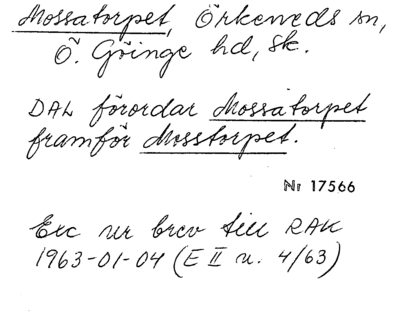 Mossatorpet, Örkeneds sn,
Ö. Göinge hd, Sk.
DAL förordar Mossatorpet
framför Mosstorpet.
Nr 17566
Exc ur brev till RAK
1963-01-04 (E II u. 4/63)